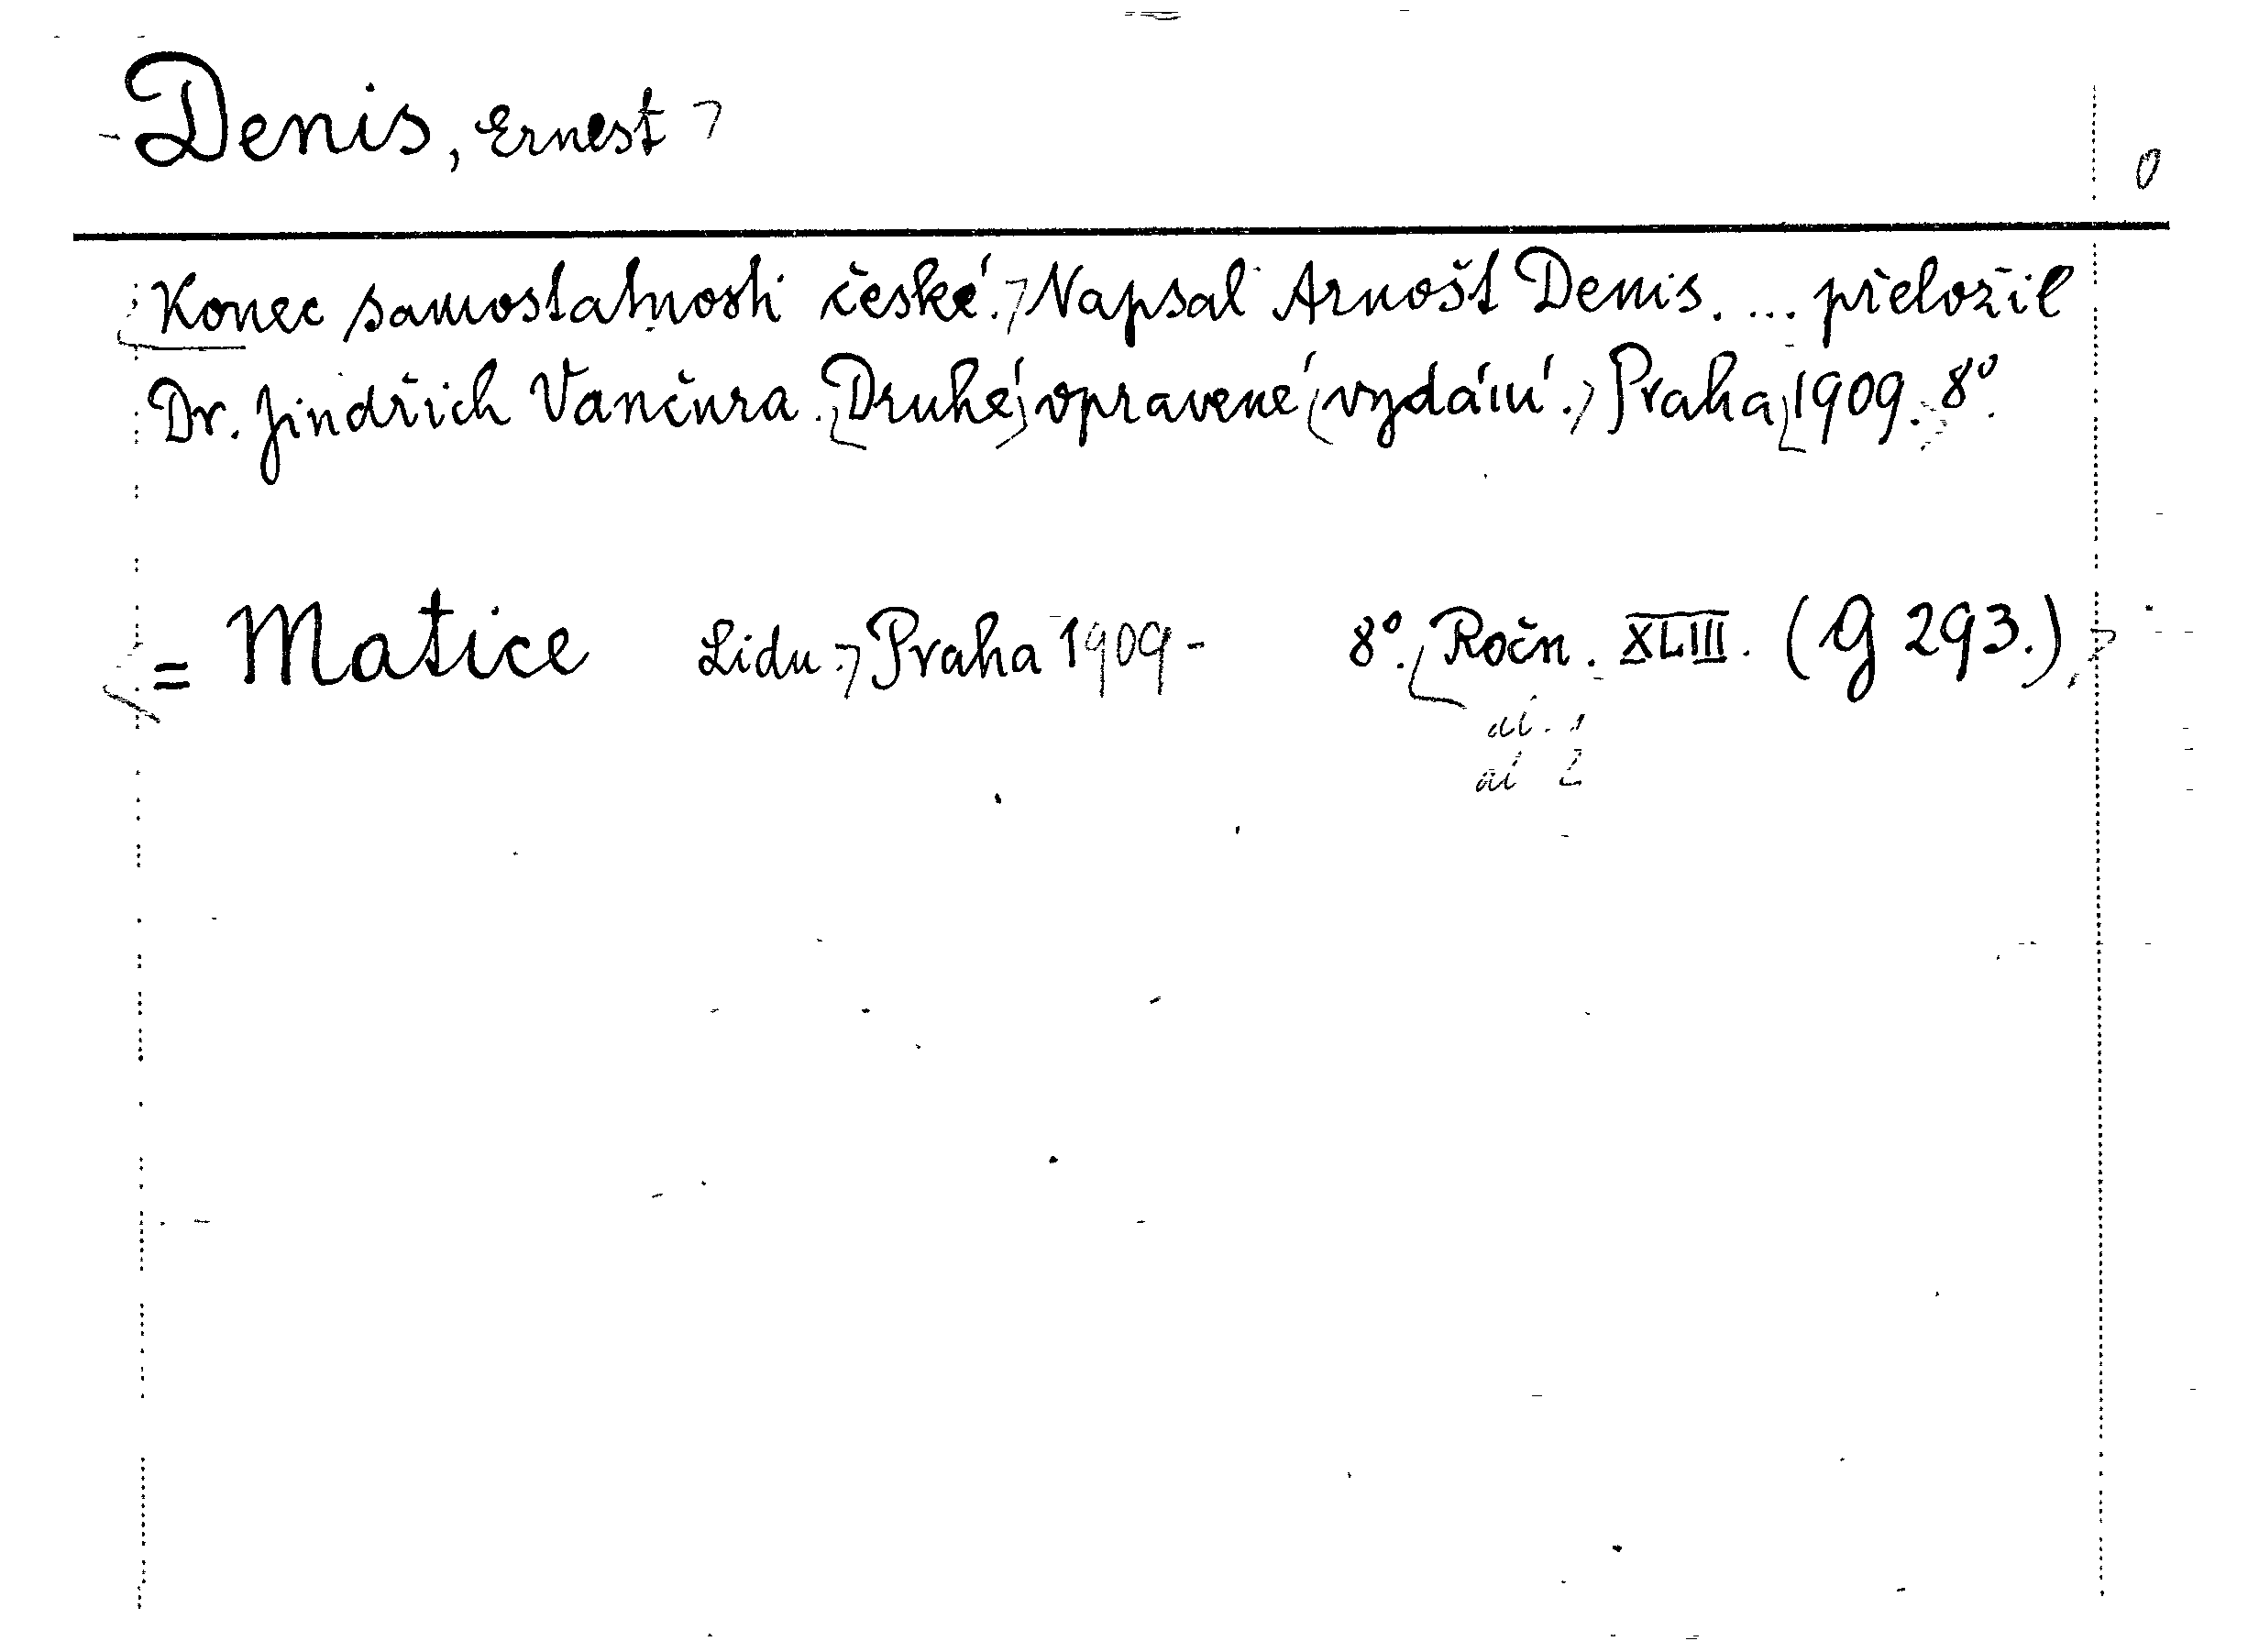 Denis, Ernest
0
Konec samostatnosti české. Napsal Arnošt Denis. ... přeložil
Dr. Jindřich Vančura. Druhé opravené vydání. Praha 1909. 8°.
= Matice Lidu. Praha 1909- 8°. Ročn. XLIII. (G 293.)